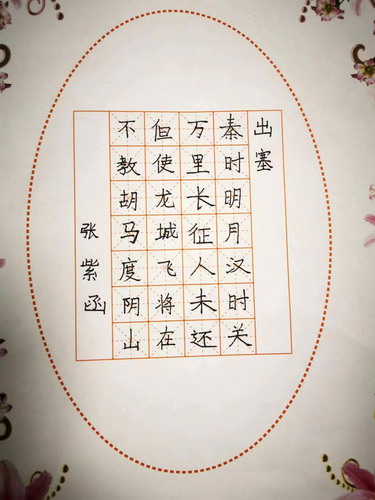 出塞
秦时明月汉时关
万里长征人未还
但使龙城飞将在
不教胡马度阴山
张紫函